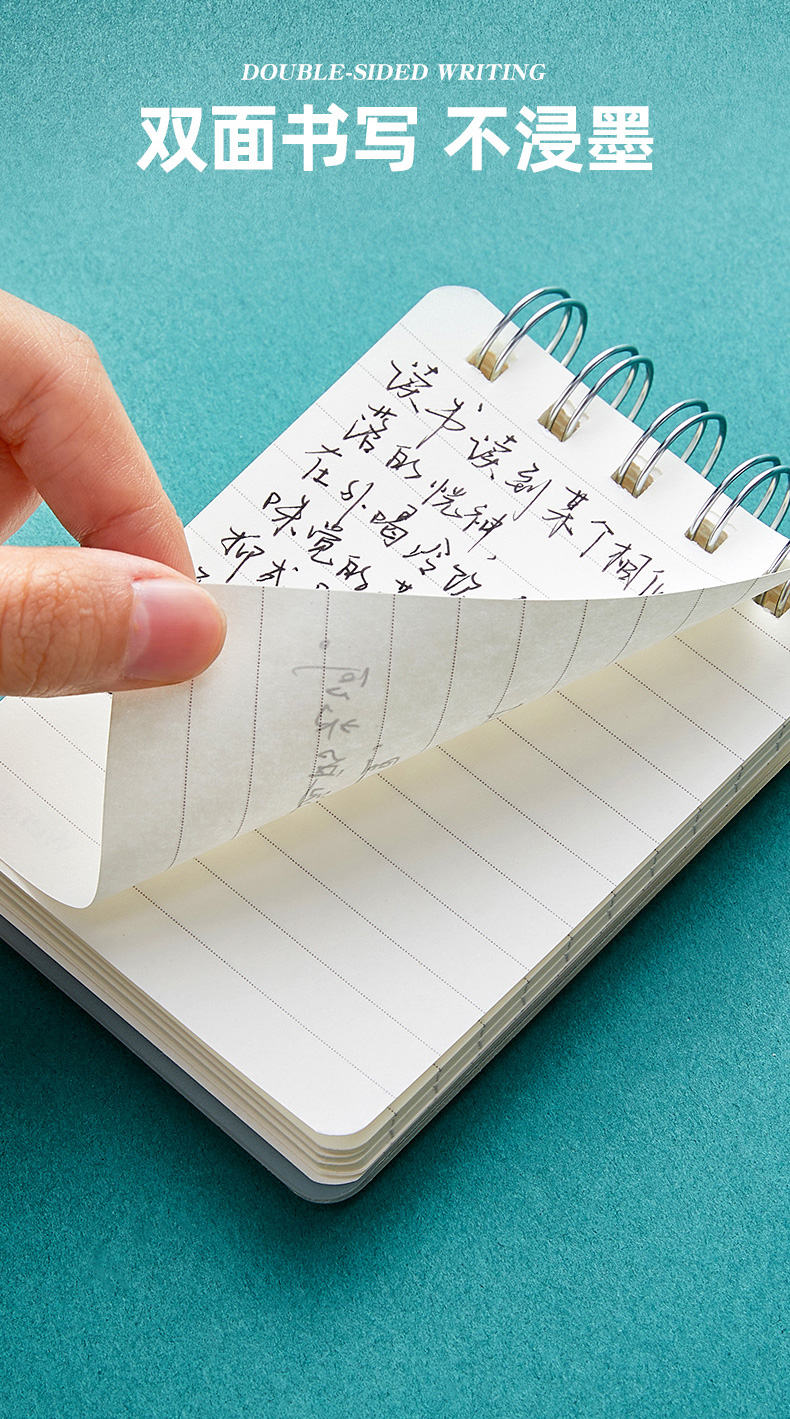 DOUBLE-SIDED WRITING
双面书写 不浸墨
读书读到某个相似
落的恍神,
在外喝冷饮
味觉的
抑或